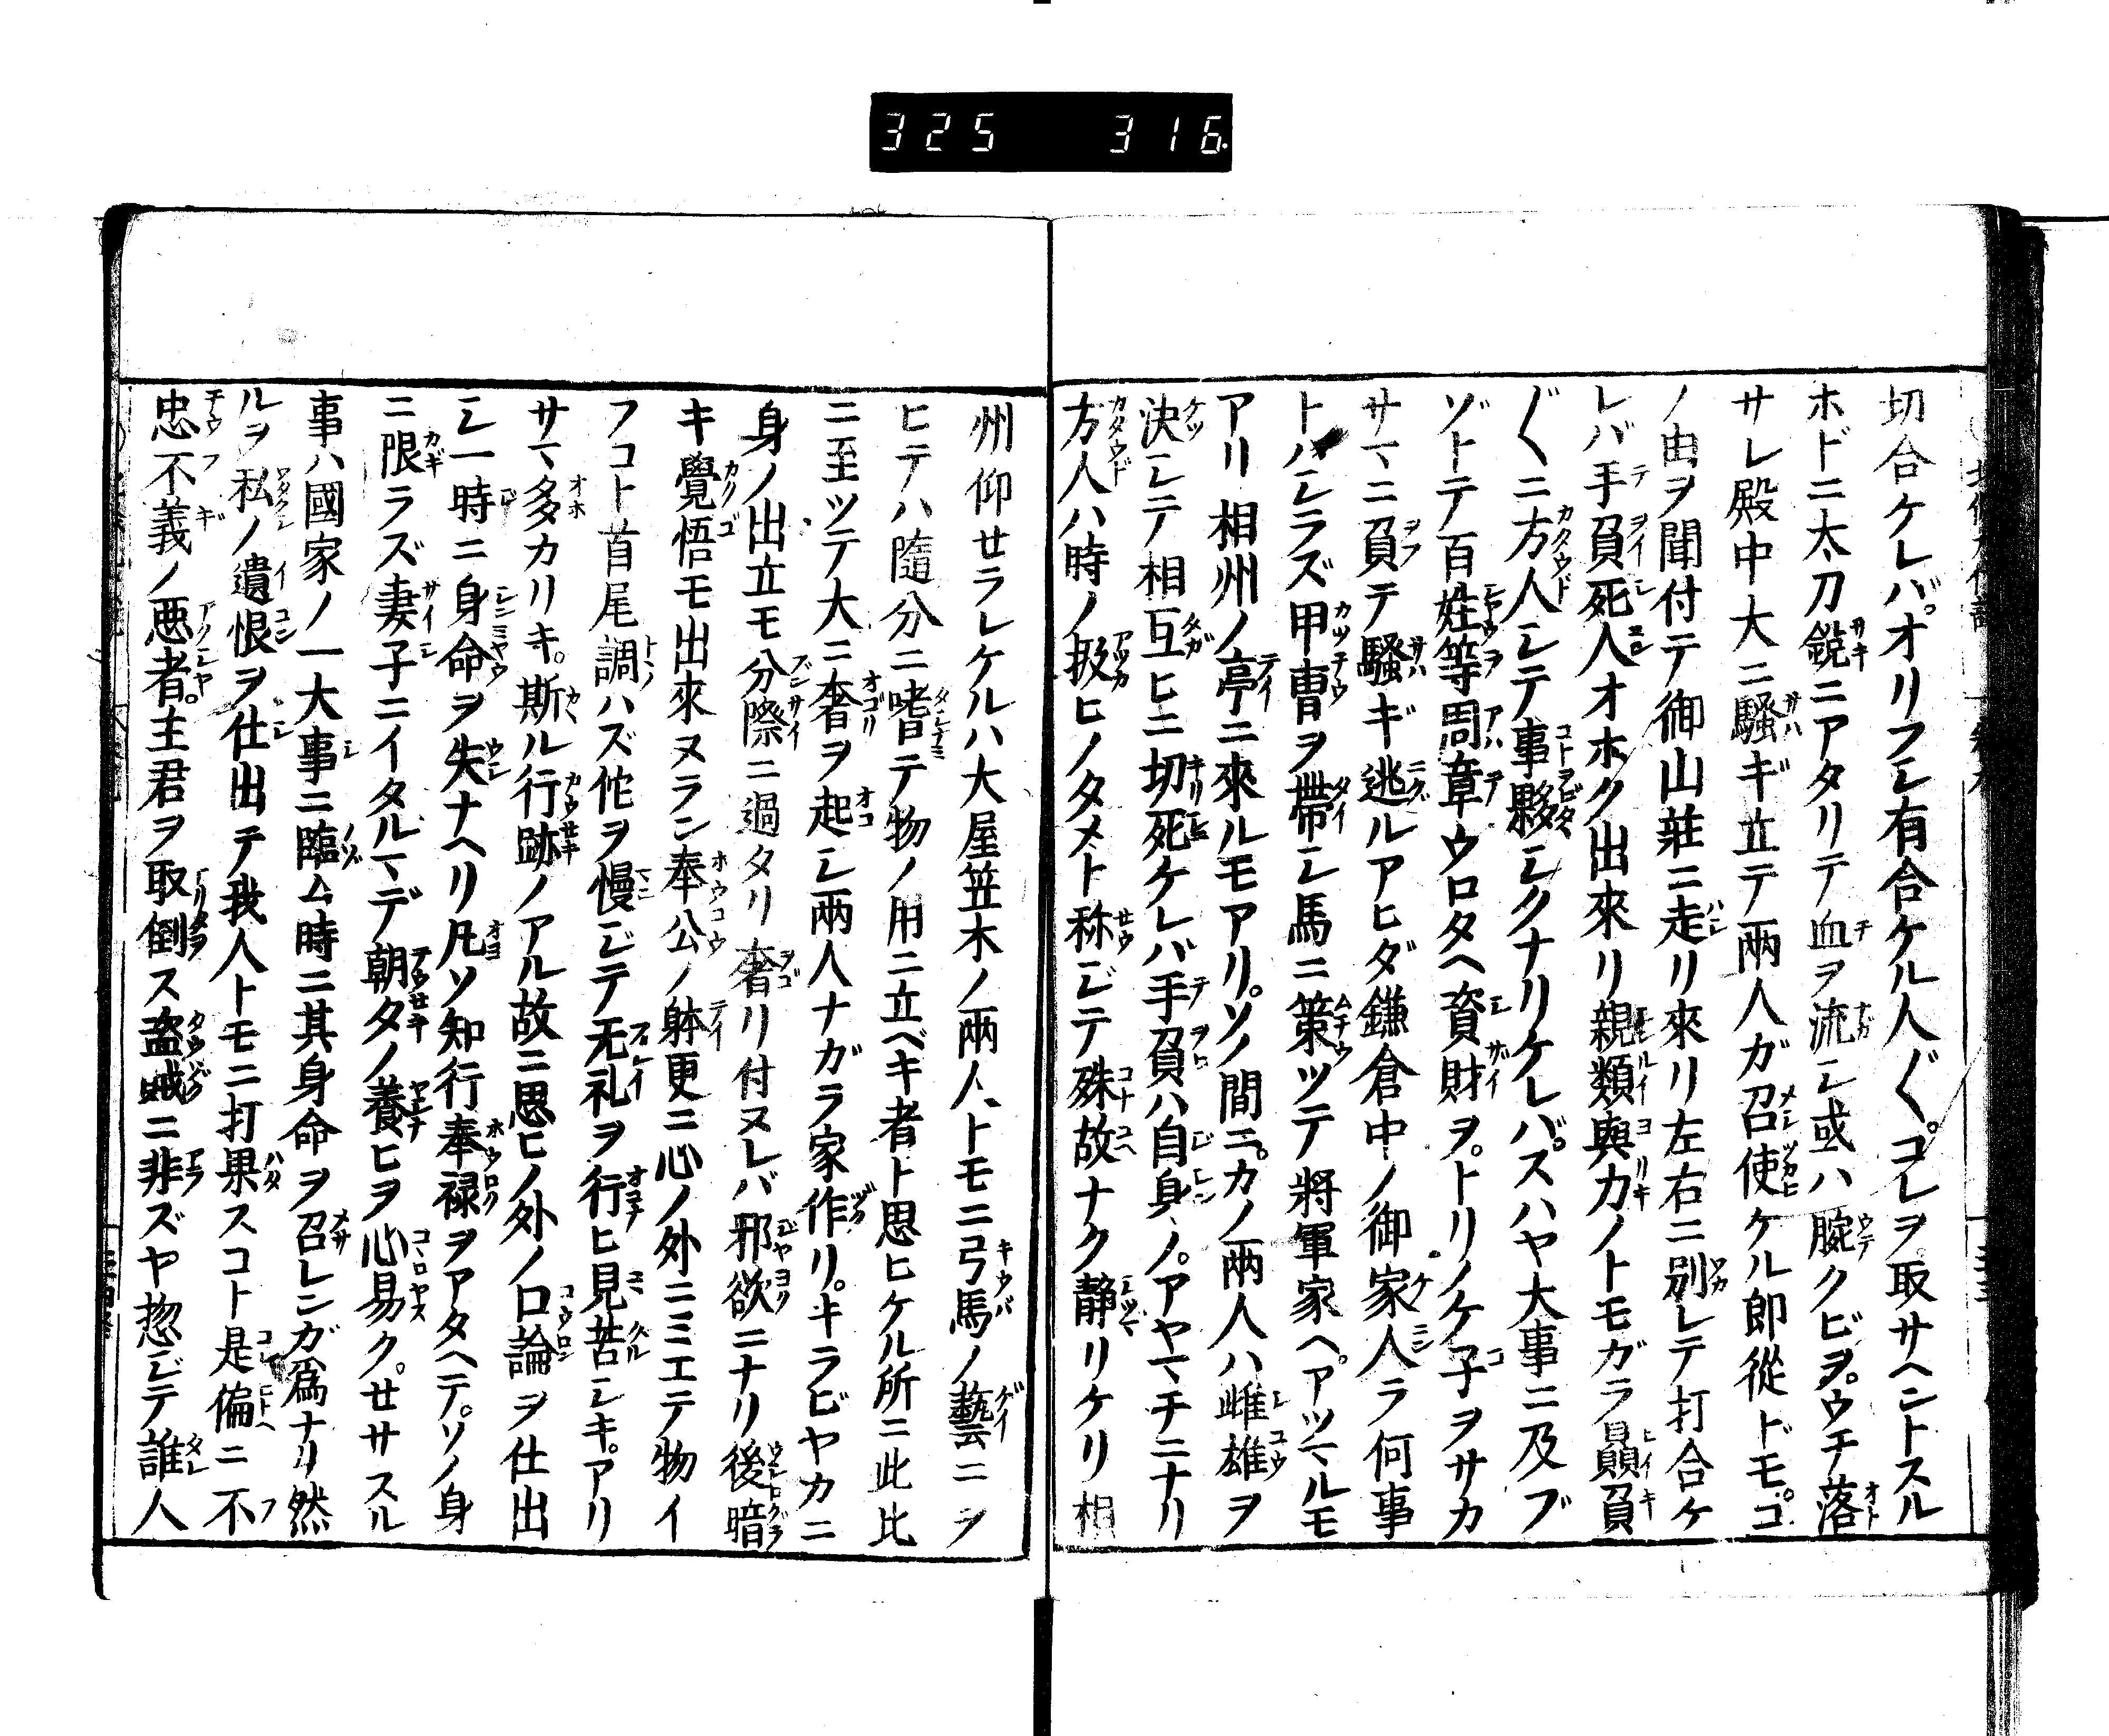 325 316
切合ケレバ。オリフシ有合ケル人〴〵。コレヲ取サヘントスル
ホドニ太刀鋭ニアタリテ血ヲ流シ或ハ腕クビヲ。ウチ落
サレ殿中大ニ騒ギ立テ両人ガ召使ケル郎従ドモ。コ
ノ由ヲ聞付テ御山荘ニ走リ來リ左右ニ別レテ打合ケ
レバ手負死人オホク出來リ親類與力ノトモガラ贔負
〴〵ニ方人シテ事夥シクナリケレバ。スハヤ大事ニ及ブ
ゾトテ百姓等周章ウロタヘ資財ヲ。トリノケ子ヲサカ
サマニ負テ騒ギ逃ルアヒダ鎌倉中ノ御家人ラ何事
トハシラズ甲冑ヲ帶シ馬ニ策ツテ將軍家ヘ。アツマルモ
アリ相州ノ亭ニ來ルモアリ。ソノ間ニ。カノ両人ハ雌雄ヲ
決シテ相互ヒニ切死ケレバ手負ハ自身ノ。アヤマチニナリ
方人ハ時ノ扱ヒノタメト称ジテ殊故ナク静リケリ相
州仰せラレケルハ大屋笠木ノ兩人トモニ弓馬ノ藝ニヲ
ヒテハ隨分ニ嗜テ物ノ用ニ立ベキ者ト思ヒケル所ニ此比
ニ至ツテ大ニ奢ヲ起シ兩人ナガラ家作リ。キラビヤカニ
身ノ出立モ分際ニ過タリ奢リ付ヌレバ邪欲ニナリ後暗
キ覺悟モ出來ヌラン奉公ノ躰更ニ心ノ外ニミエテ物イ
フコト首尾調ハズ佗ヲ慢ジテ无礼ヲ行ヒ見苦シキ。アリ
サマ多カリキ。斯ル行跡ノアル故ニ思ヒノ外ノ口論ヲ仕出
シ一時ニ身命ヲ失ナヘリ凡ソ知行奉禄ヲアタヘテ。ソノ身
ニ限ラズ妻子ニイタルマデ朝夕ノ養ヒヲ心易ク。せサスル
事ハ國家ノ一大事ニ臨ム時ニ其身命ヲ召レンガ爲ナリ然
ルヲ私ノ遺恨ヲ仕出テ我人トモニ打果スコト是偏ニ不
忠不義ノ悪者。主君ヲ取倒ス盗賊ニ非ズヤ惣ジテ誰人